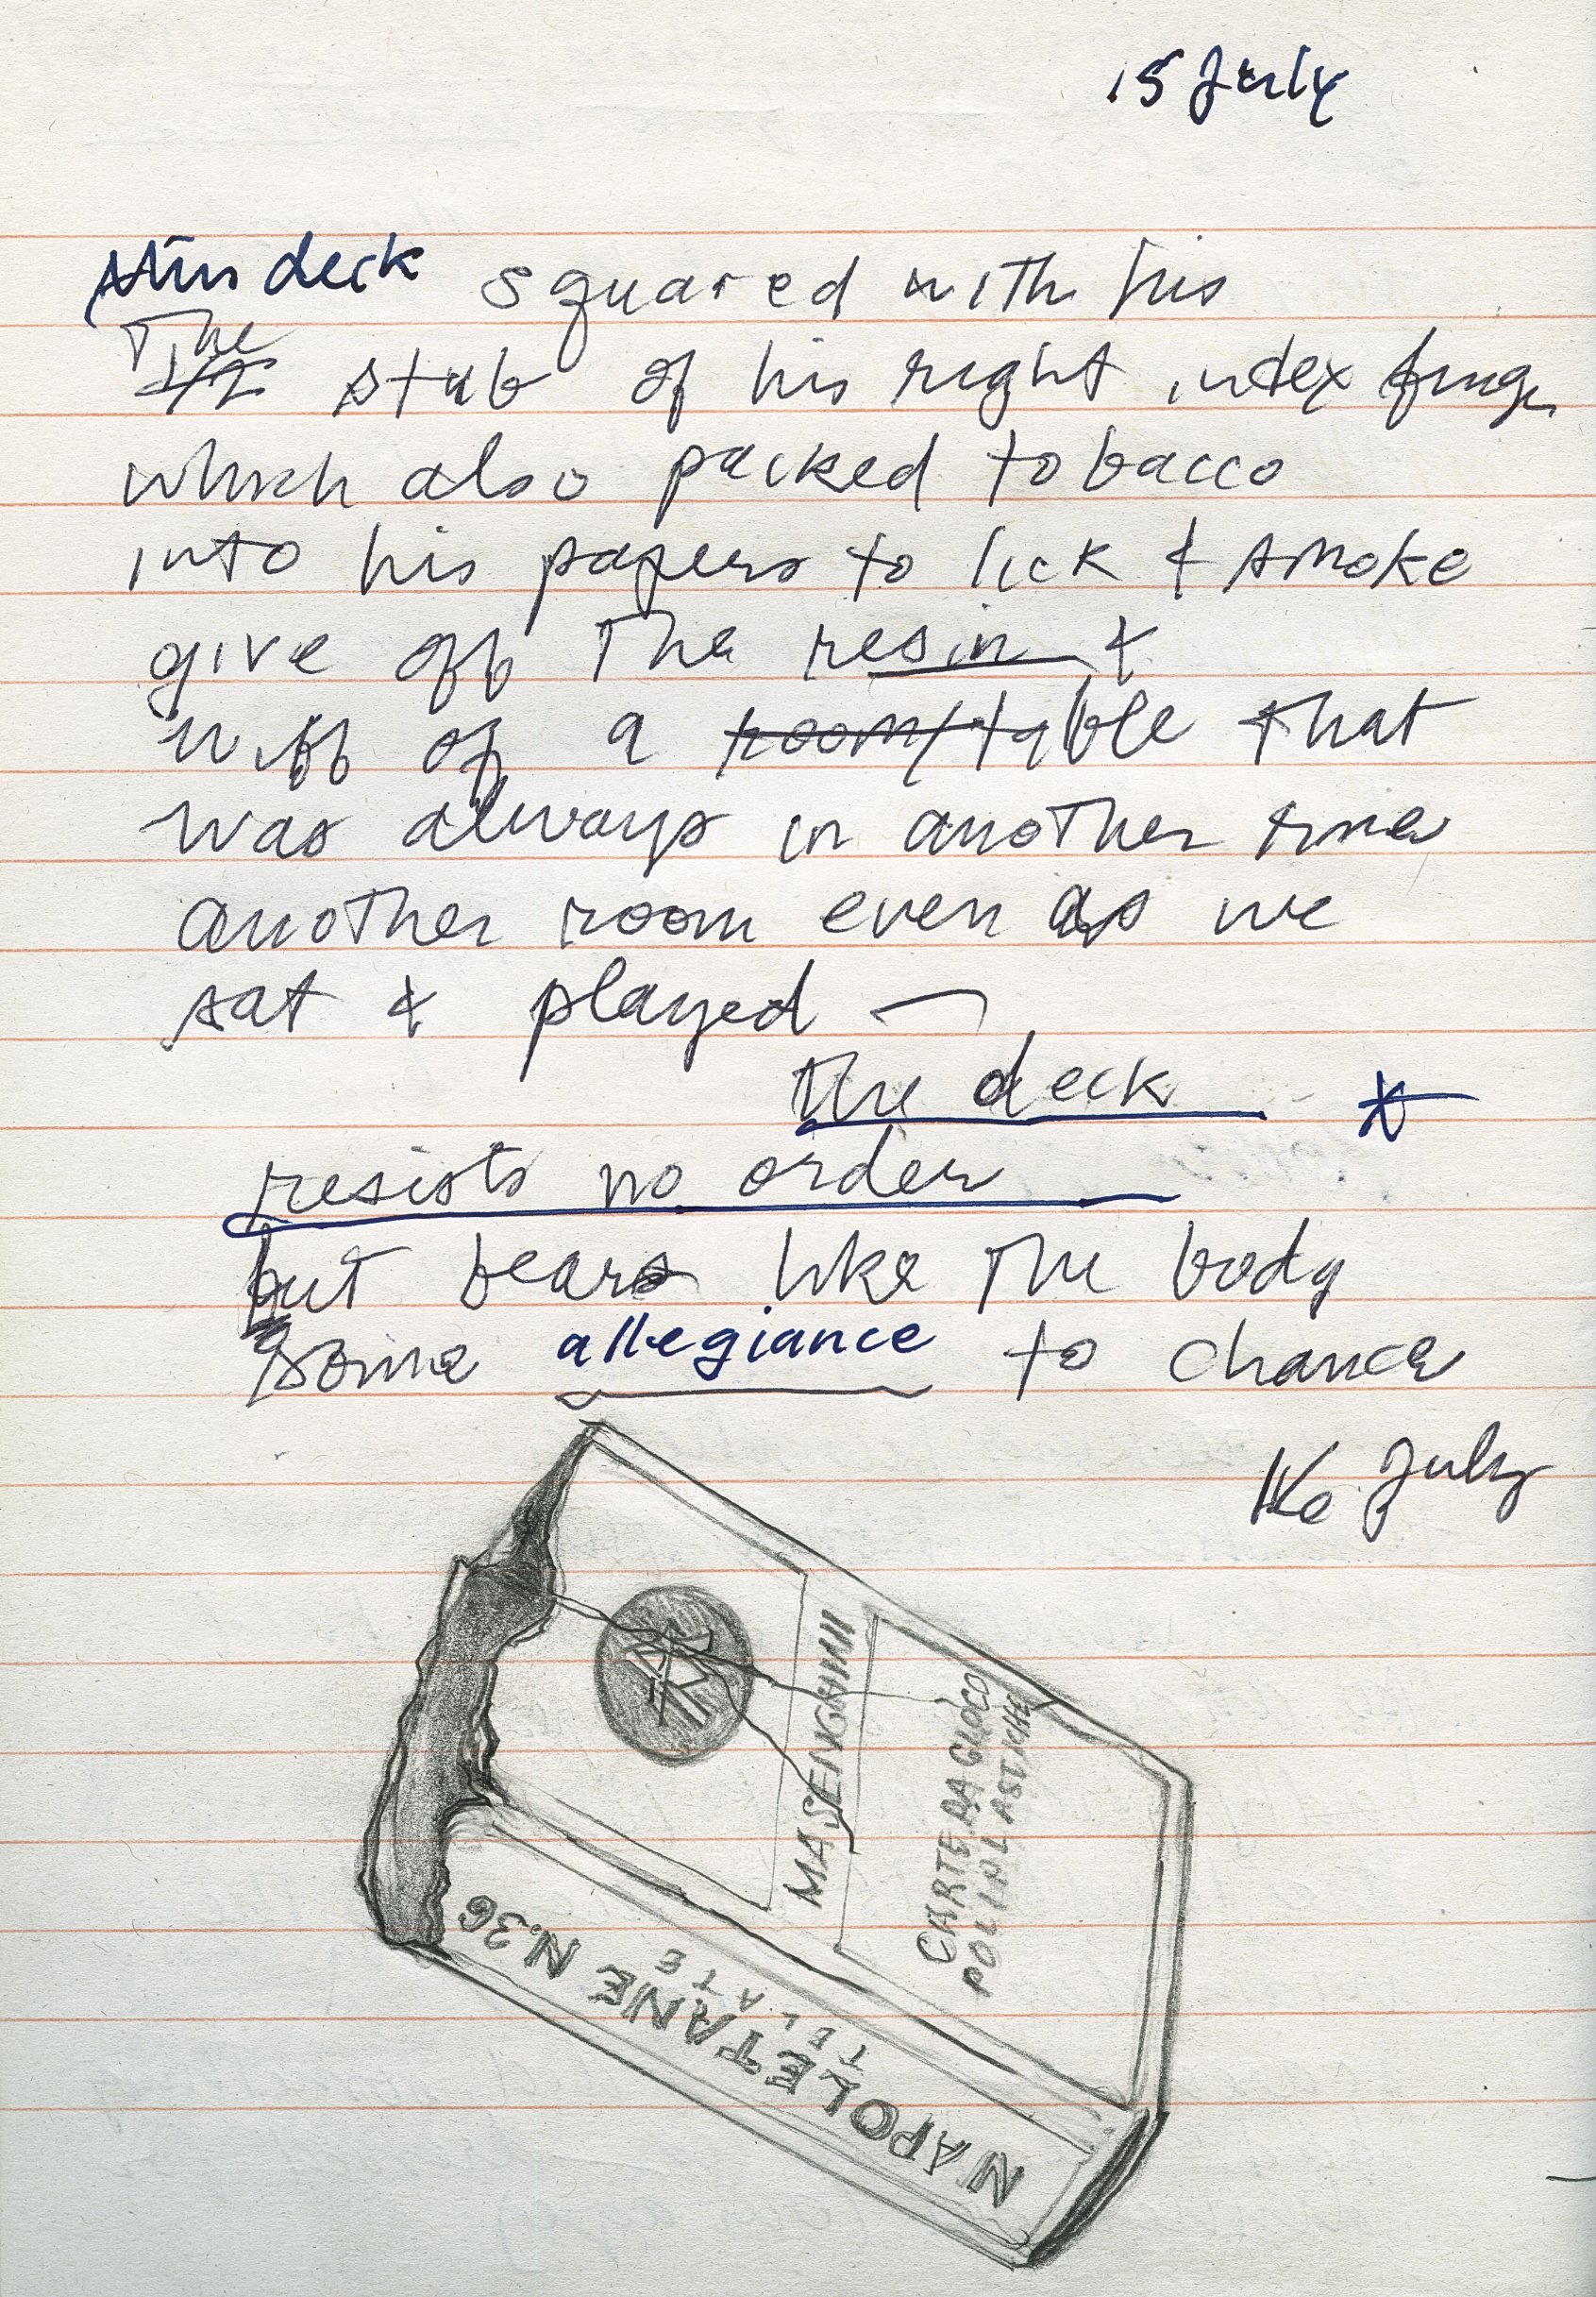 15 July
deck squared with his
The 1/2 stub of his right index finger
which also packed tobacco
into his papers to lick & smoke
give off the resin &
wiff of a room/table that
was always in another time
another room even as we
sat & played —
the deck *
resists no order
but bears like the body
some allegiance to chance
16 July
MASENGHINI
CARTE DA GIOCO
NAPOLETANE N.36
TELATE